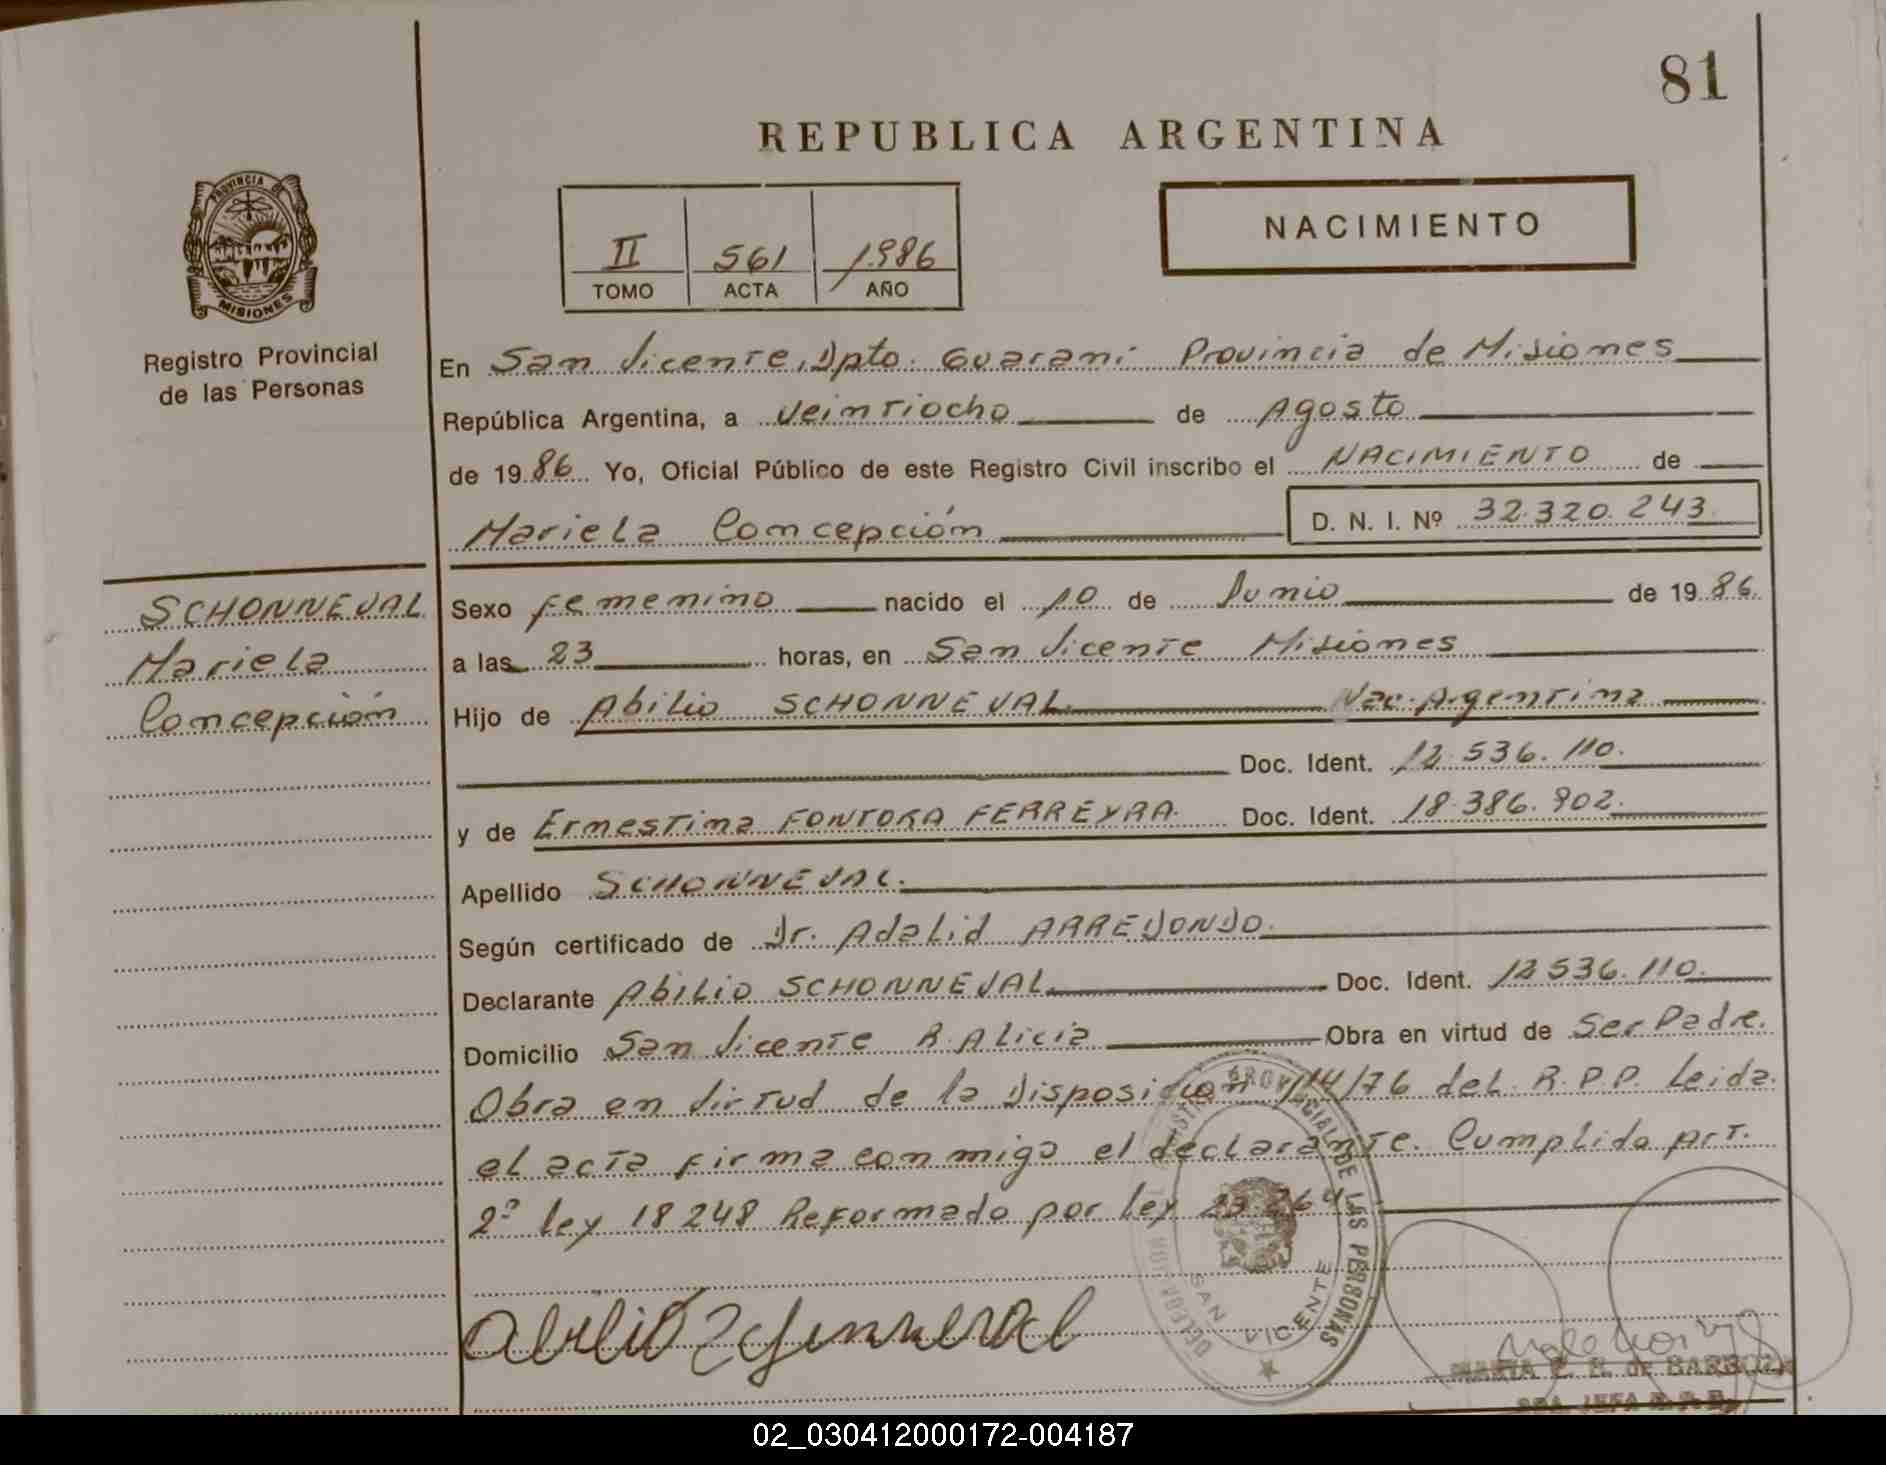 81
REPUBLICA ARGENTINA
PROVINCIA DE
MISIONES
Registro Provincial
de las Personas
II 561 1986
TOMO ACTA AÑO
NACIMIENTO
En San Vicente, Dpto. Guaraní Provincia de Misiones
República Argentina, a Veintiocho de Agosto
de 1986 Yo, Oficial Público de este Registro Civil inscribo el NACIMIENTO de
Mariela Concepción D. N. I. Nº 32.320.243
SCHONNEVAL
Mariela
Concepción
Sexo femenino nacido el 10 de Junio de 1986.
a las 23 horas, en San Vicente Misiones
Hijo de Abilio SCHONNEVAL. Nac. Argentina
Doc. Ident. 12.536.110.
y de Ernestina FONTORA FERREYRA. Doc. Ident. 18.386.902.
Apellido SCHONNEVAL.
Según certificado de Dr. Adalid ARREDONDO.
Declarante Abilio SCHONNEVAL. Doc. Ident. 12.536.110.
Domicilio San Vicente R. Alicia Obra en virtud de Ser Padre.
Obra en virtud de la Disposicion 114/76 del R.P.P. Leida
el acta firma conmigo el declarante. Cumplido Art.
2º Ley 18248 Reformado por Ley 23.264
REGISTRO PROVINCIAL DE LAS PERSONAS
DELEGACION
SAN VICENTE
MARIA E. R. de BARBOZA
02_030412000172-004187